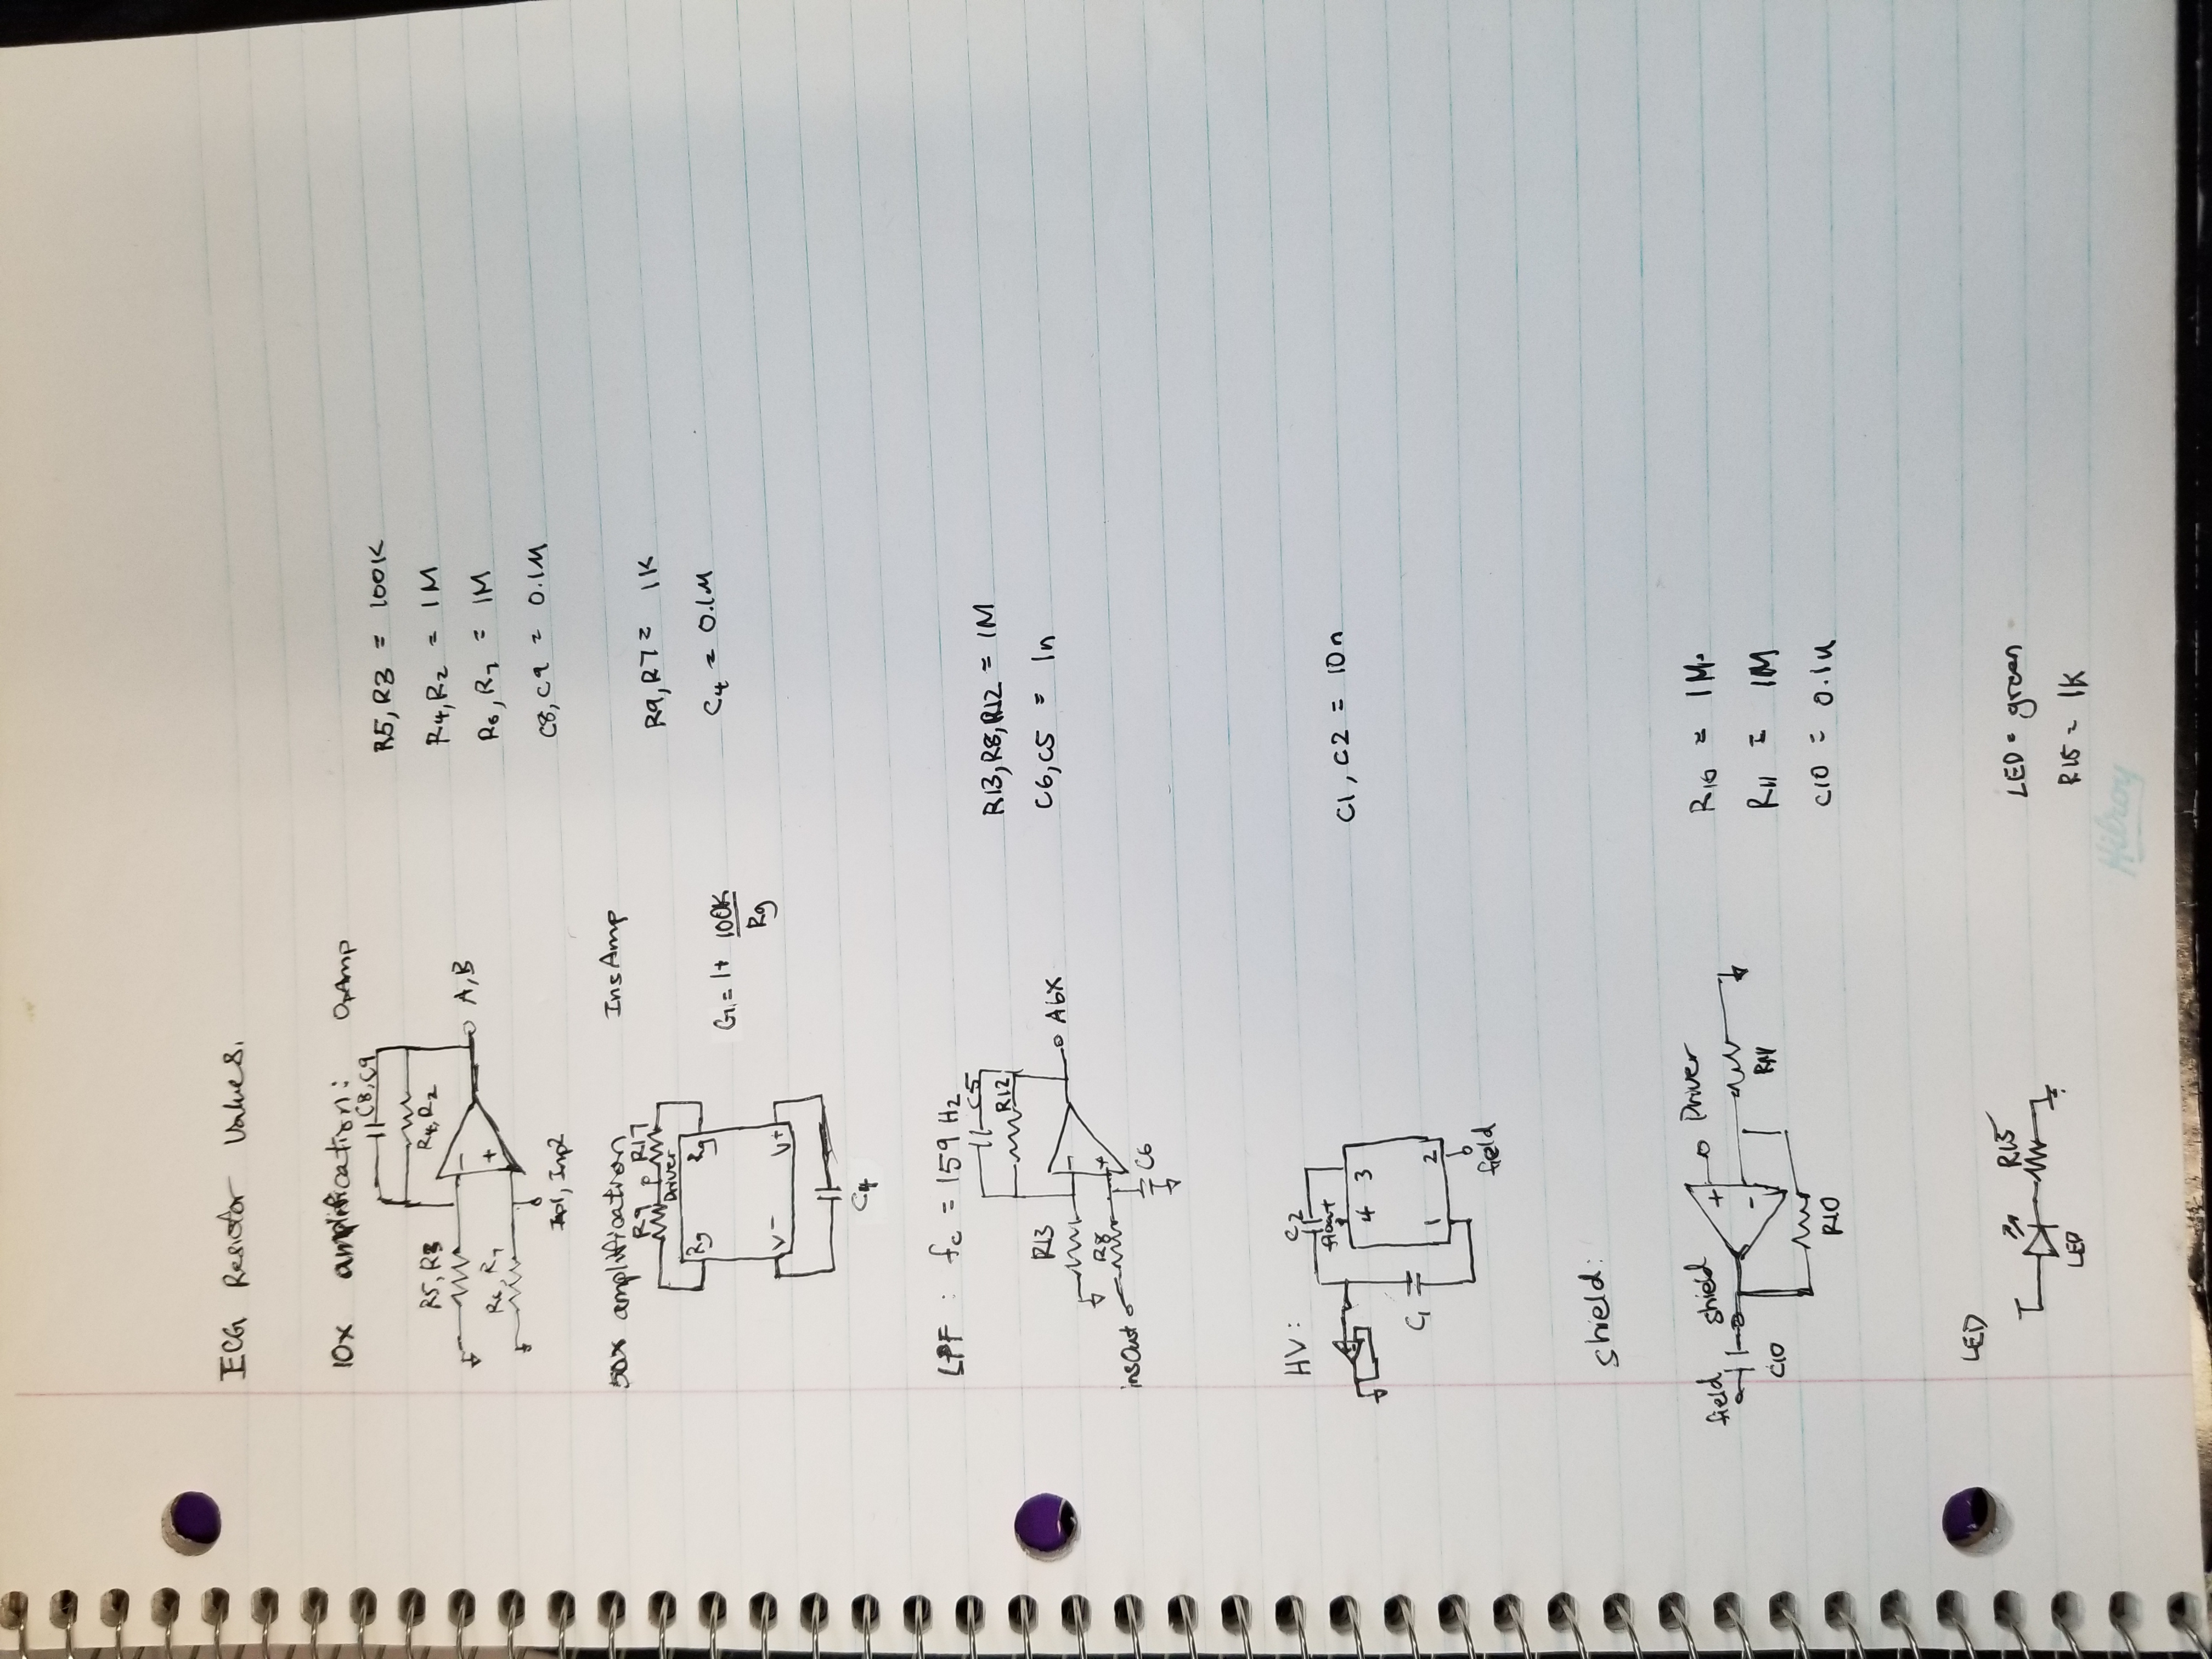 ECG Resistor Values.
10x amplification: OpAmp
C8, C9
R4, R2
R5, R3
- A, B
+
R6, R7
Inp1, Inp2
R5, R3 = 100K
R4, R2 = 1M
R6, R7 = 1M
C8, C9 = 0.1M
50x amplification InsAmp
R9 R17
Driver
Rg Rg
V- V+
C4
G = 1+ 100K
Rg
R9, R7 = 1K
C4 = 0.1M
LPF : fc = 159 Hz
C5
R12
R13
- A6X
R8
insOut +
C6
R13, R8, R12 = 1M
C6, C5 = 1n
HV:
C2
float
4 3
C1
1 2
field
C1, C2 = 10n
Shield:
field shield + Driver
-
C10 R11
R10
R10 = 1M
R11 = 1M
C10 = 0.1u
LED
R15
LED
LED = green
R15 = 1K
Hilroy